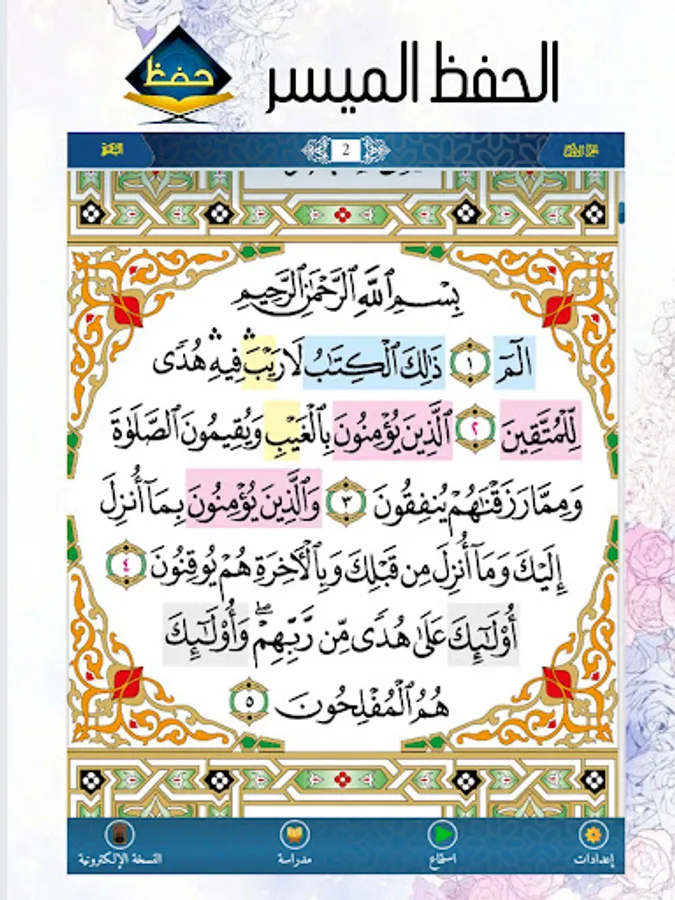 الحفظ الميسر
حفظ
2
بِسْمِ ٱللَّهِ ٱلرَّحْمَٰنِ ٱلرَّحِيمِ
الٓمٓ ١ ذَٰلِكَ ٱلْكِتَٰبُ لَا رَيْبَ ۛ فِيهِ ۛ هُدًى
لِّلْمُتَّقِينَ ٢ ٱلَّذِينَ يُؤْمِنُونَ بِٱلْغَيْبِ وَيُقِيمُونَ ٱلصَّلَوٰةَ
وَمِمَّا رَزَقْنَٰهُمْ يُنفِقُونَ ٣ وَٱلَّذِينَ يُؤْمِنُونَ بِمَآ أُنزِلَ
إِلَيْكَ وَمَآ أُنزِلَ مِن قَبْلِكَ وَبِٱلْءَاخِرَةِ هُمْ يُوقِنُونَ ٤
أُو۟لَٰٓئِكَ عَلَىٰ هُدًى مِّن رَّبِّهِمْ ۖ وَأُو۟لَٰٓئِكَ
هُمُ ٱلْمُفْلِحُونَ ٥
إعدادات
استماع
مدراسة
النسخة الإلكترونية